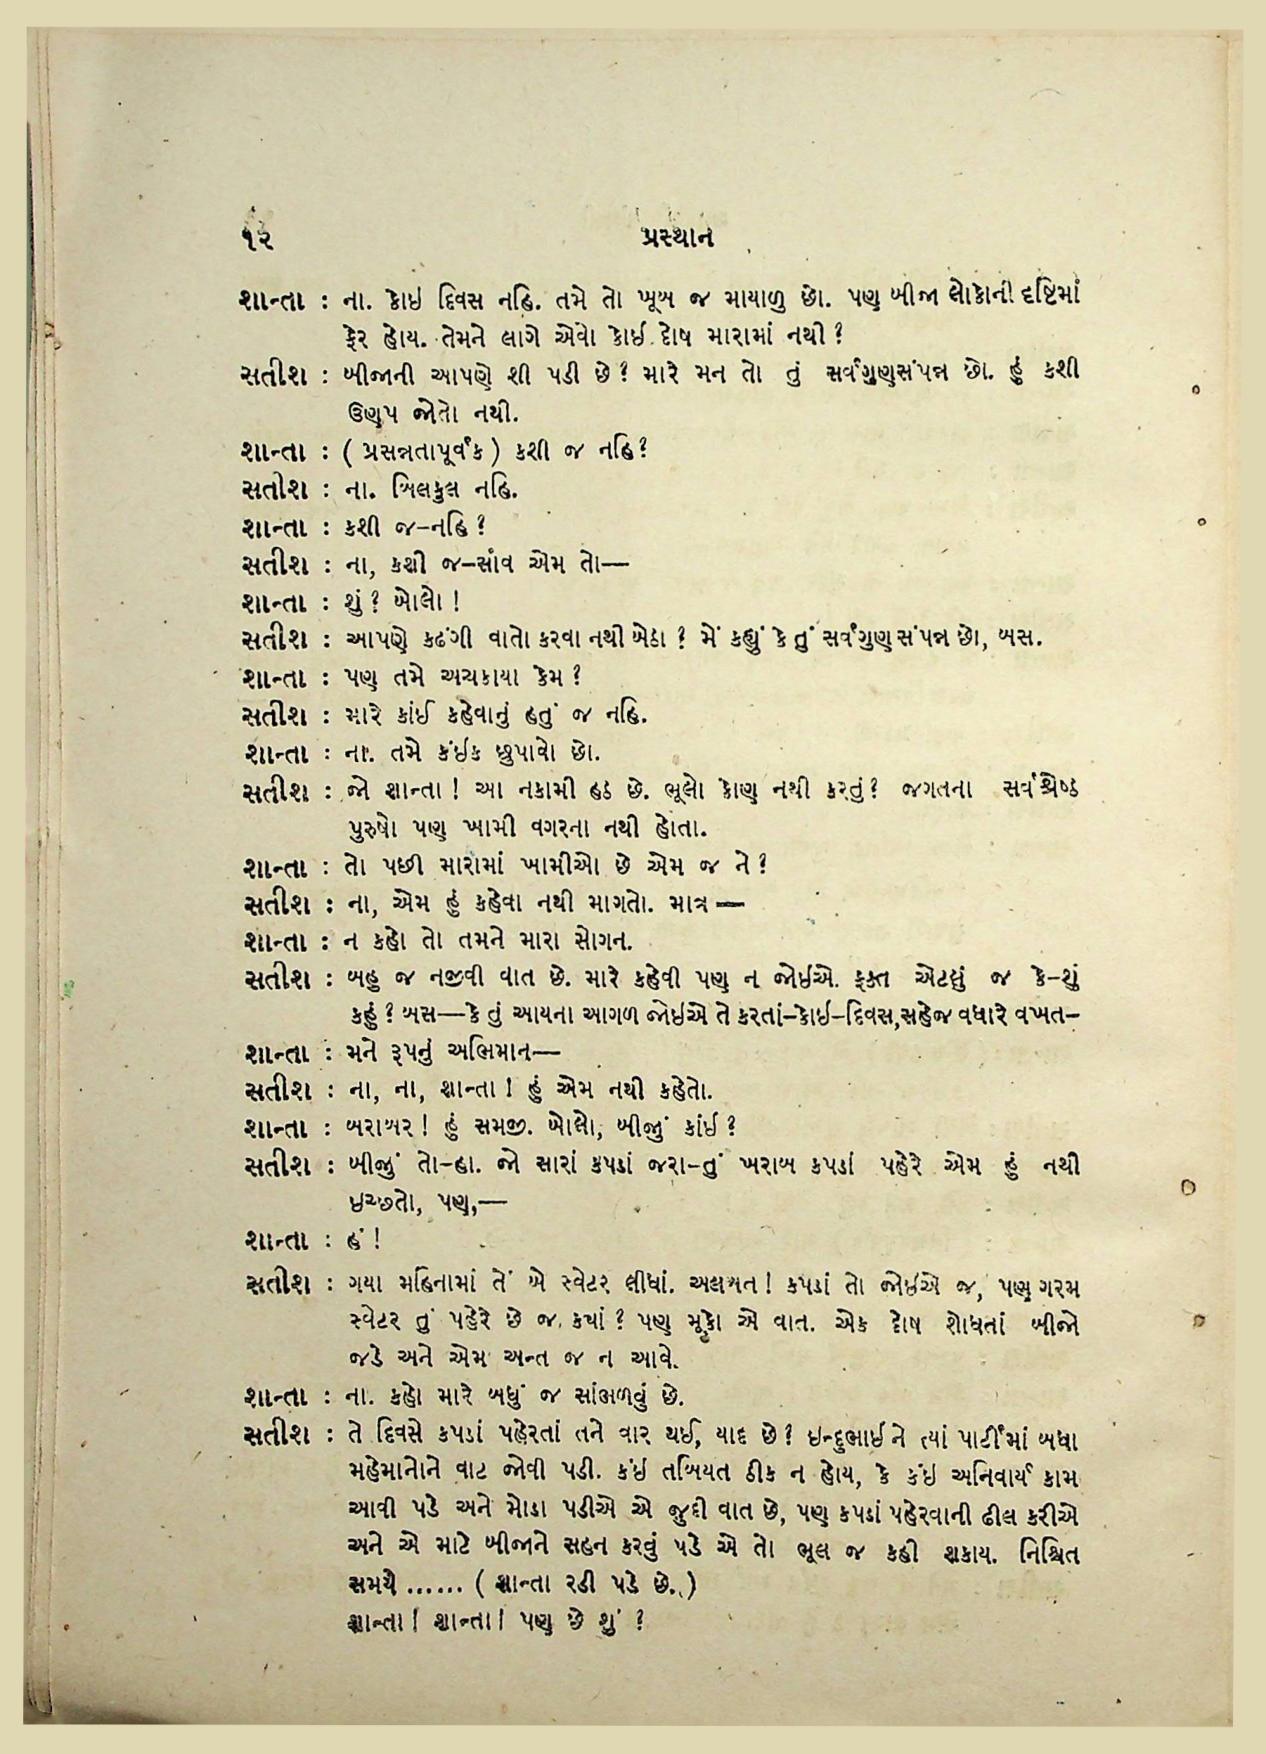 ૧૨ પ્રસ્થાન
શાન્તા : ના. કોઇ દિવસ નહિ. તમે તો ખૂબ જ માયાળુ છો. પણ બીજા લોકોની દૃષ્ટિમાં
ફેર હોય. તેમને લાગે એવો કોઈ દોષ મારામાં નથી ?
સતીશ : બીજાની આપણે શી પડી છે ? મારે મન તો તું સર્વગુણસંપન્ન છો. હું કશી
ઉણપ જોતો નથી.
શાન્તા : ( પ્રસન્નતાપૂર્વક ) કશી જ નહિ?
સતીશ : ના. બિલકુલ નહિ.
શાન્તા : કશી જ–નહિ ?
સતીશ : ના, કશી જ–સાંવ એમ તો—
શાન્તા : શું ? બોલો !
સતીશ : આપણે કઢંગી વાતો કરવા નથી બેઠા ? મેં કહ્યું કે તું સર્વગુણસંપન્ન છો, બસ.
શાન્તા : પણ તમે અચકાયા કેમ ?
સતીશ : મારે કાંઈ કહેવાનું હતું જ નહિ.
શાન્તા : ના. તમે કંઇક છુપાવો છો.
સતીશ : જો શાન્તા ! આ નકામી હઠ છે. ભૂલો કોણ નથી કરતું ? જગતના સર્વશ્રેષ્ઠ
પુરુષો પણ ખામી વગરના નથી હોતા.
શાન્તા : તો પછી મારામાં ખામીઓ છે એમ જ ને ?
સતીશ : ના, એમ હું કહેવા નથી માગતો. માત્ર —
શાન્તા : ન કહો તો તમને મારા સોગન.
સતીશ : બહુ જ નજીવી વાત છે. મારે કહેવી પણ ન જોઇએ. ફક્ત એટલું જ કે–શું
કહું ? બસ—કે તું આયના આગળ જોઇએ તે કરતાં–કોઇ–દિવસ,સહેજ વધારે વખત–
શાન્તા : મને રૂપનું અભિમાન—
સતીશ : ના, ના, શાન્તા ! હું એમ નથી કહેતો.
શાન્તા : બરાબર ! હું સમજી. બોલો, બીજું કાંઇ ?
સતીશ : બીજું તો–હા. જો સારાં કપડાં જરા–તું ખરાબ કપડાં પહેરે એમ હું નથી
ઇચ્છતો, પણ,—
શાન્તા : હં !
સતીશ : ગયા મહિનામાં તેં બે સ્વેટર લીધાં. અલબત ! કપડાં તો જોઈએ જ, પણ ગરમ
સ્વેટર તું પહેરે છે જ કયાં ? પણ મૂકો એ વાત. એક દોષ શોધતાં બીજો
જડે અને એમ અન્ત જ ન આવે.
શાન્તા : ના. કહો મારે બધું જ સાંભળવું છે.
સતીશ : તે દિવસે કપડાં પહેરતાં તને વાર થઈ, યાદ છે ? ઇન્દુભાઇને ત્યાં પાર્ટીમાં બધા
મહેમાનોને વાટ જોવી પડી. કંઇ તબિયત ઠીક ન હોય, કે કંઇ અનિવાર્ય કામ
આવી પડે અને મોડા પડીએ એ જુદી વાત છે, પણ કપડાં પહેરવાની ઢીલ કરીએ
અને એ માટે બીજાને સહન કરવું પડે એ તો ભૂલ જ કહી શકાય. નિશ્ચિત
સમયે ...... ( શાન્તા રડી પડે છે. )
શાન્તા ! શાન્તા ! પણ છે શું ?